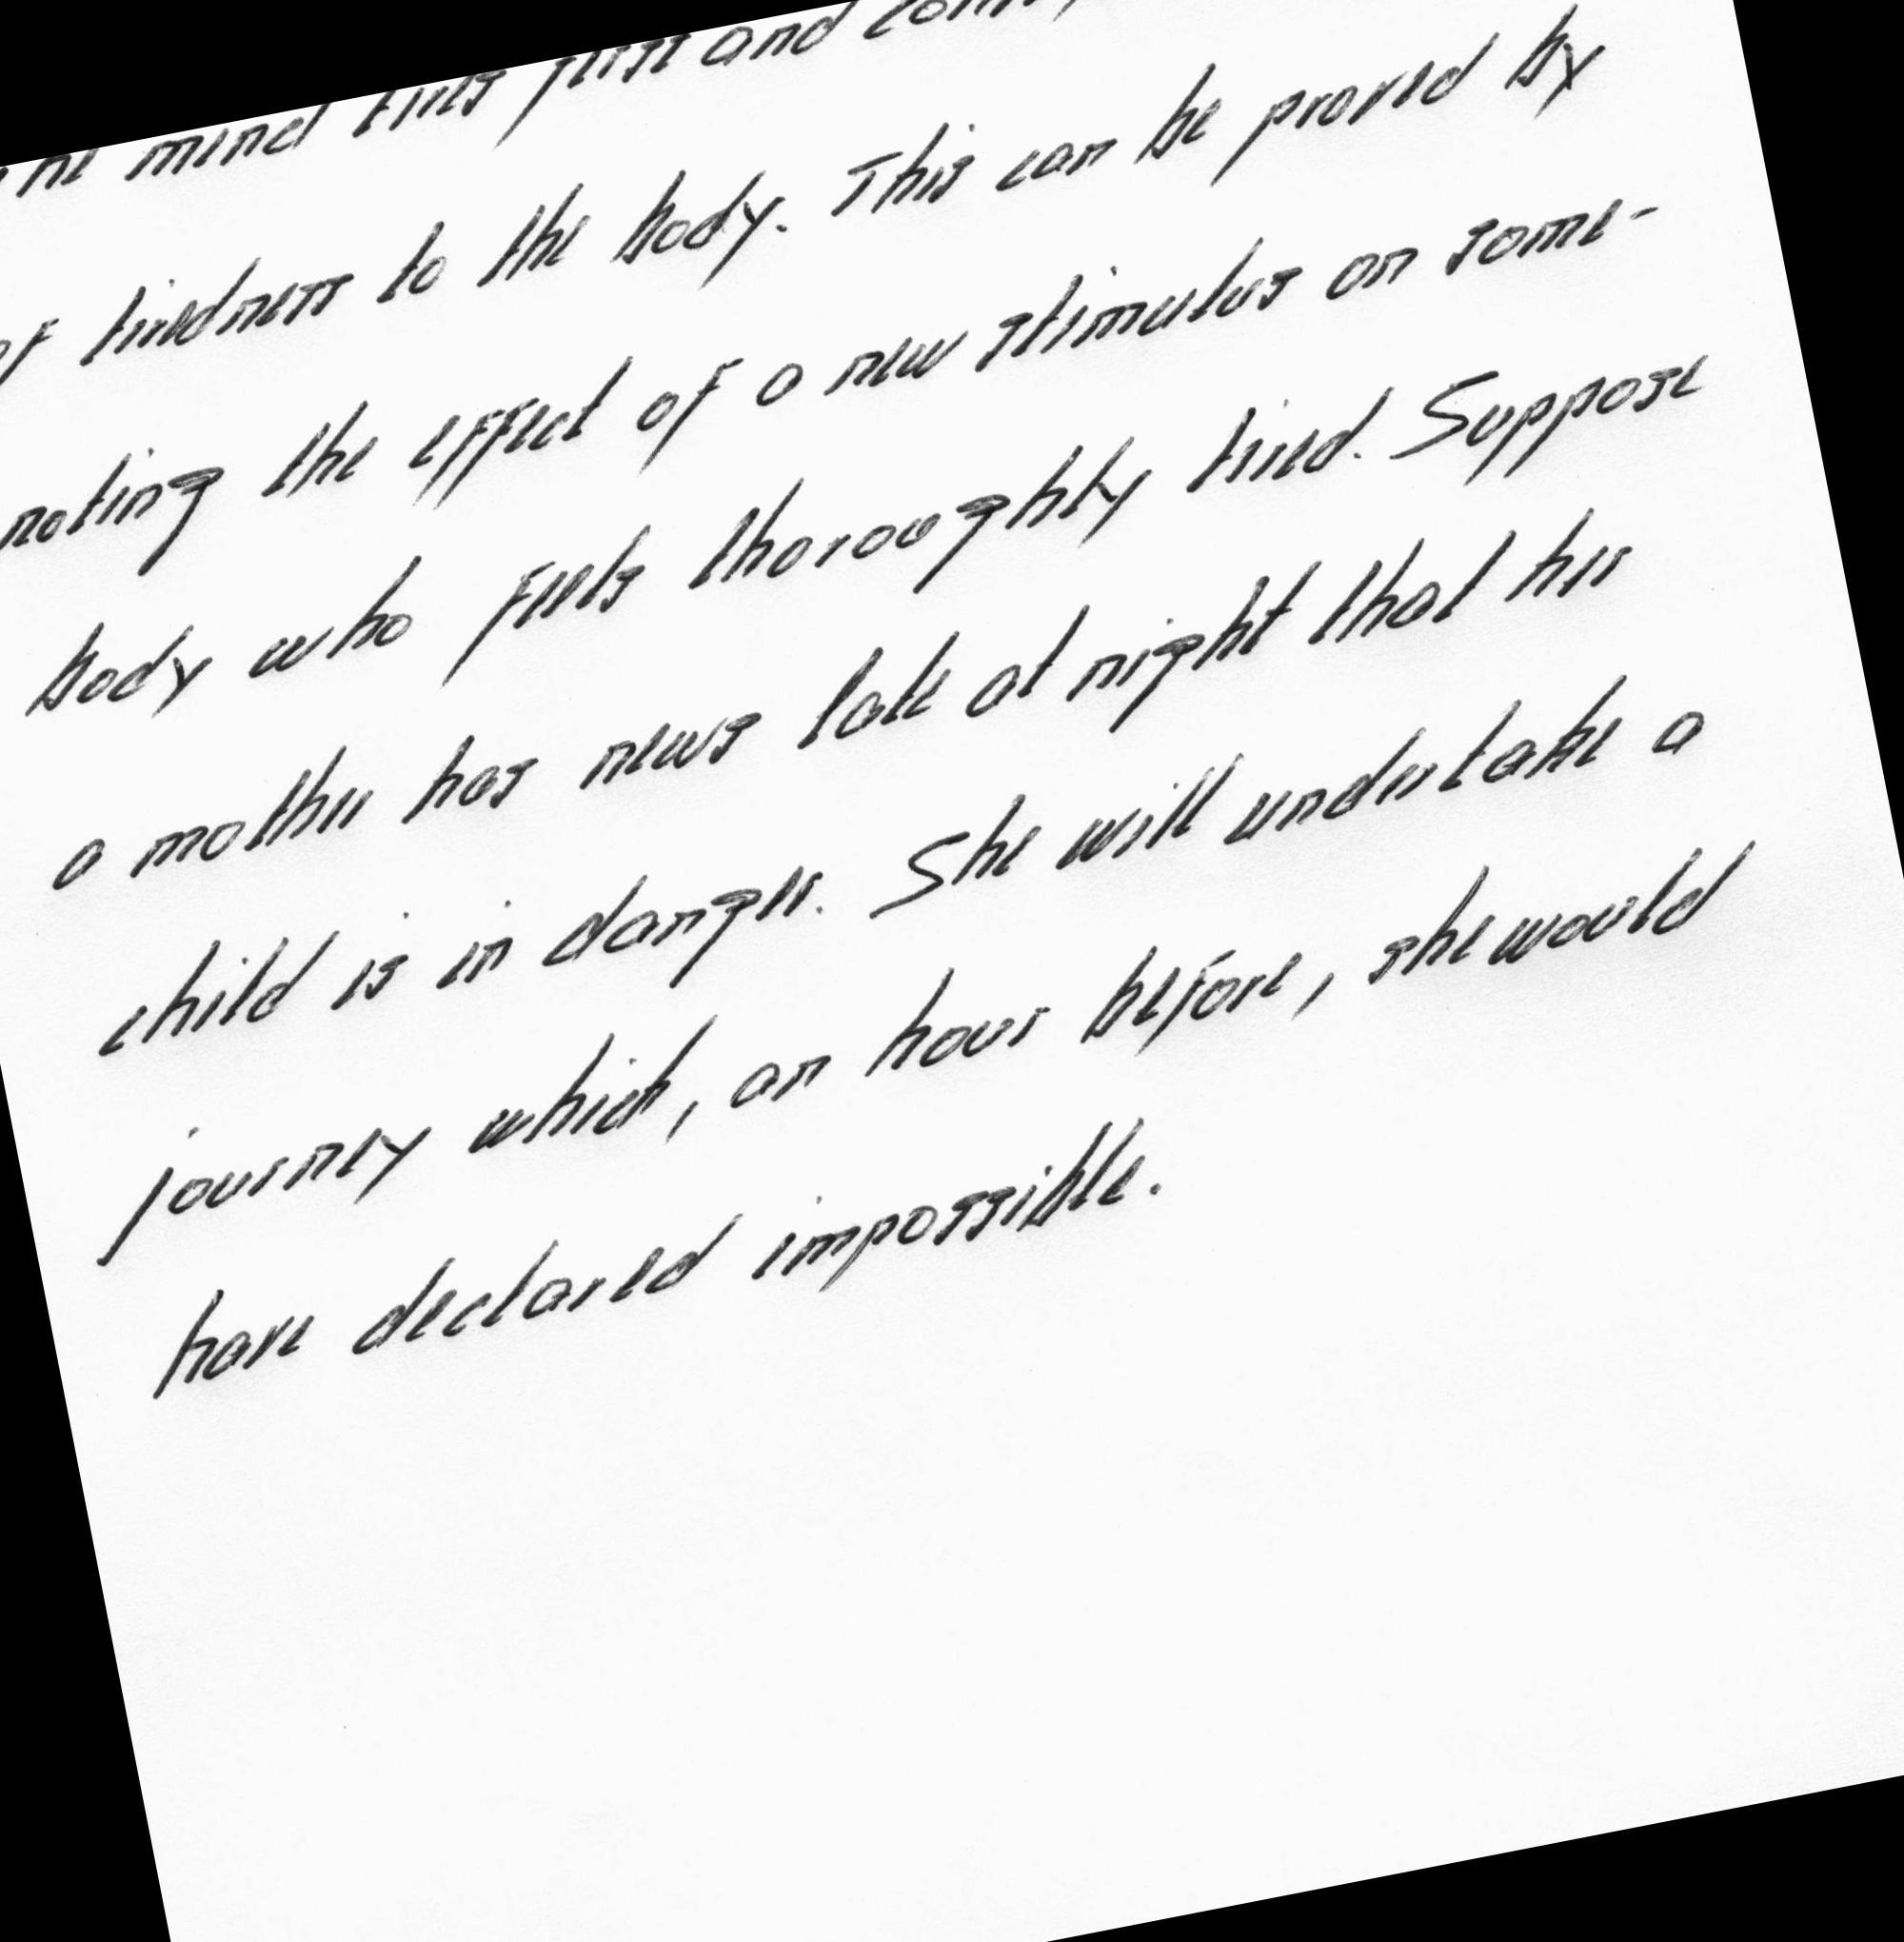 mind tires first and
of tiredness to the body. This can be proved by
noting the effect of a new stimulus on some-
body who feels thoroughly tired. Suppose
a mother has news late at night that her
child is in danger. She will undertake a
journey which, an hour before, she would
have declared impossible.